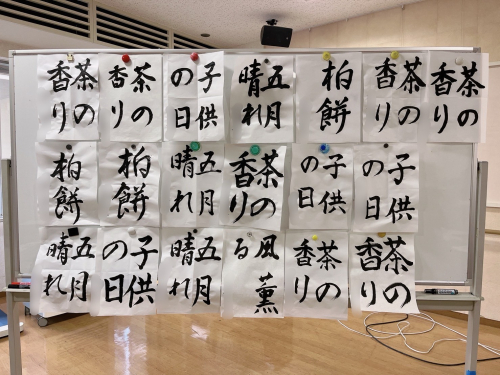 茶の
香り
茶の
香り
柏餅
五月
晴れ
子供
の日
茶の
香り
茶の
香り
子供
の日
子供
の日
茶の
香り
五月
晴れ
柏餅
柏餅
茶の
香り
茶の
香り
風薫
る
五月
晴れ
子供
の日
五月
晴れ